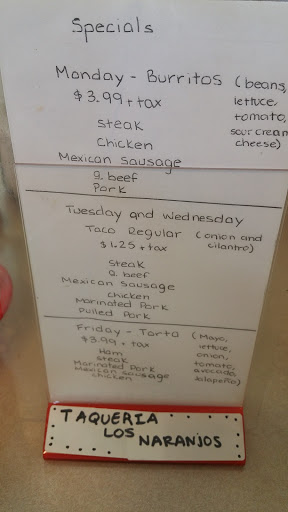 Specials
Monday - Burritos (beans,
$3.99 + tax lettuce,
tomato,
steak sour cream
chicken cheese)
Mexican Sausage
g. beef
Pork
Tuesday and Wednesday
Taco Regular (onion and
$1.25 + tax cilantro)
steak
g. beef
Mexican Sausage
chicken
Marinated Pork
Pulled Pork
Friday - Torta (Mayo,
$3.99 + tax lettuce,
Ham onion,
steak tomato,
Marinated Pork avocado,
Mexican sausage Jalapeño)
chicken
TAQUERIA
LOS NARANJOS